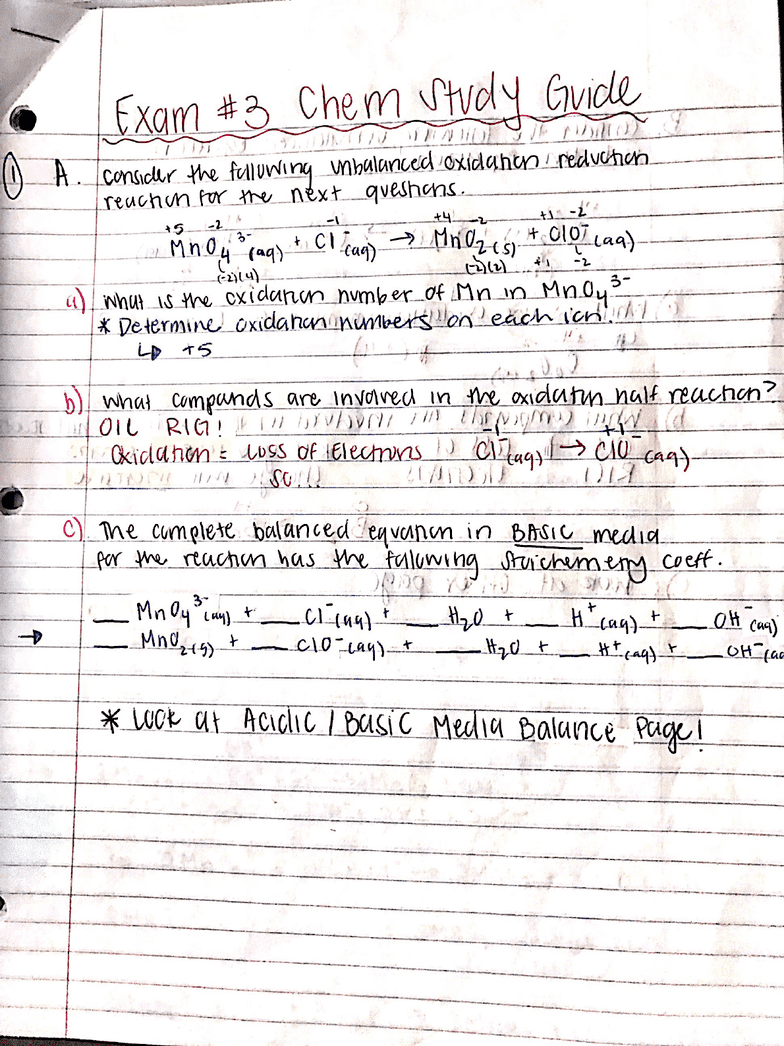 Exam #3 Chem Study Guide
① A. consider the following unbalanced oxidation reduction
reaction for the next questions.
+5 -2 -1 +4 -2 +1 -2
MnO₄³⁻(aq) + Cl⁻(aq) → MnO₂(s) + ClO⁻(aq)
(-2)(4) (-2)(2) +1 -2
a) what is the oxidation number of Mn in MnO₄³⁻
* Determine oxidation numbers on each ion.
↳ +5
b) what compands are involved in the oxidation half reaction?
OIL RIG!
-1 +1
Oxidation = Loss of Electrons Cl⁻(aq) → ClO⁻(aq)
so...
c) The complete balanced equation in BASIC media
for the reaction has the following stoichemetry coeff.
__ MnO₄³⁻(aq) + __ Cl⁻(aq) + __ H₂O + __ H⁺(aq) + __ OH⁻(aq)
→ __ MnO₂(s) + __ ClO⁻(aq) + __ H₂O + __ H⁺(aq) + __ OH⁻(aq
* Look at Acidic / Basic Media Balance Page!